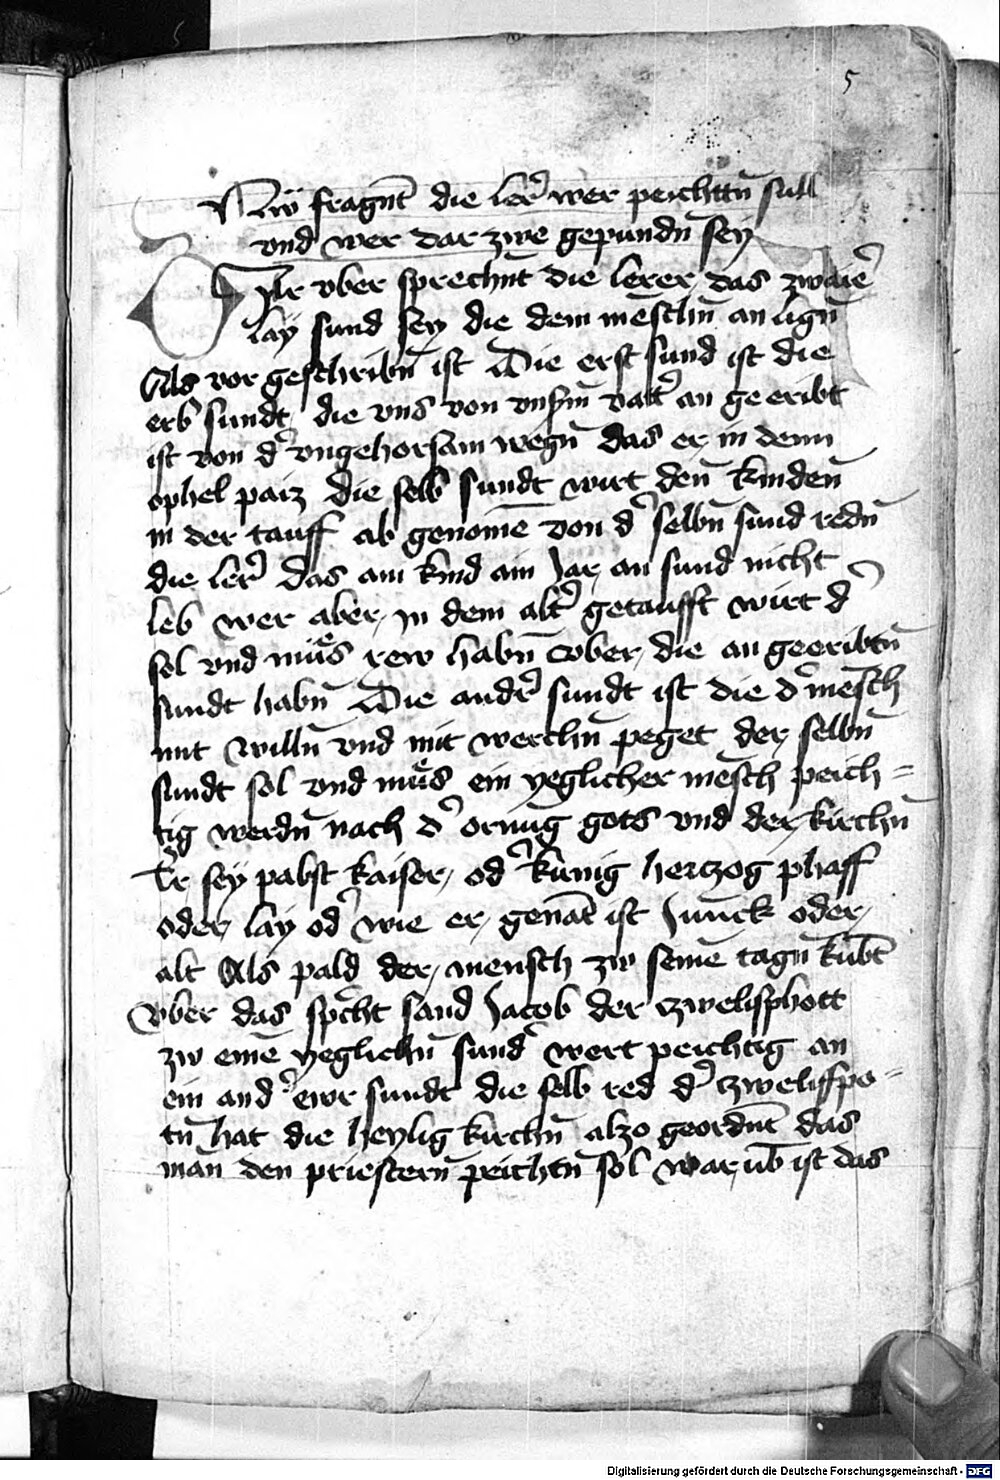 5
Nw fragnt die ler̾ wer peichttn̄ sull
vnd wer dar zwe gepundn̄ sey
Hir vber sprechnt die lerer das zwaier̾
lay sund sey die dem mēschn̄ an lign̄
Als vor geschribn̄ ist Die erst sund ist die
erb sundt die vns von vnsm̄ vatt̾ an ge eribt
ist von d̾ vngehorsam wegn̄ das er in denn
ophel paiz die selb sundt wirt den̄ kinden̄
in der tauff ab genomē von d̾ selbn̄ sund redn̄
die ler̾ das ain kind ain Jar an sund nicht
leb wer aber in dem alt̾ getaufft wirt d̾
sol vnd mus rew habn̄ vber die an geeribtn̄
sundt habn̄ Die ander̾ sundt ist die d̾ mēsch
mit willn̄ vnd mit werchn̄ peget der selbn̄
sundt sol vnd mus ein yeglicher mēsch peich=
tig werdn̄ nach d̾ ornūg gots vnd der kirchn̄
Er sey pabst kaiser od̾ kunig hertzog phaff
oder lay od̾ wie er genāt ist Junck oder
alt Als pald der mensch zw seinē tagn̄ kūbt
Vber das spcht sand Jacob der zwelifphott
zw einē yeglichn̄ sund̾ wert peichtig an
ein and̾ ewr sundt die selb red d̾ zweliffpo=
tn̄ hat die heylig kirchn̄ alzo geordnt das
man den priestern̄ peichtn̄ sol war vb̄ ist das
Digitalisierung gefördert durch die Deutsche Forschungsgemeinschaft - DFG